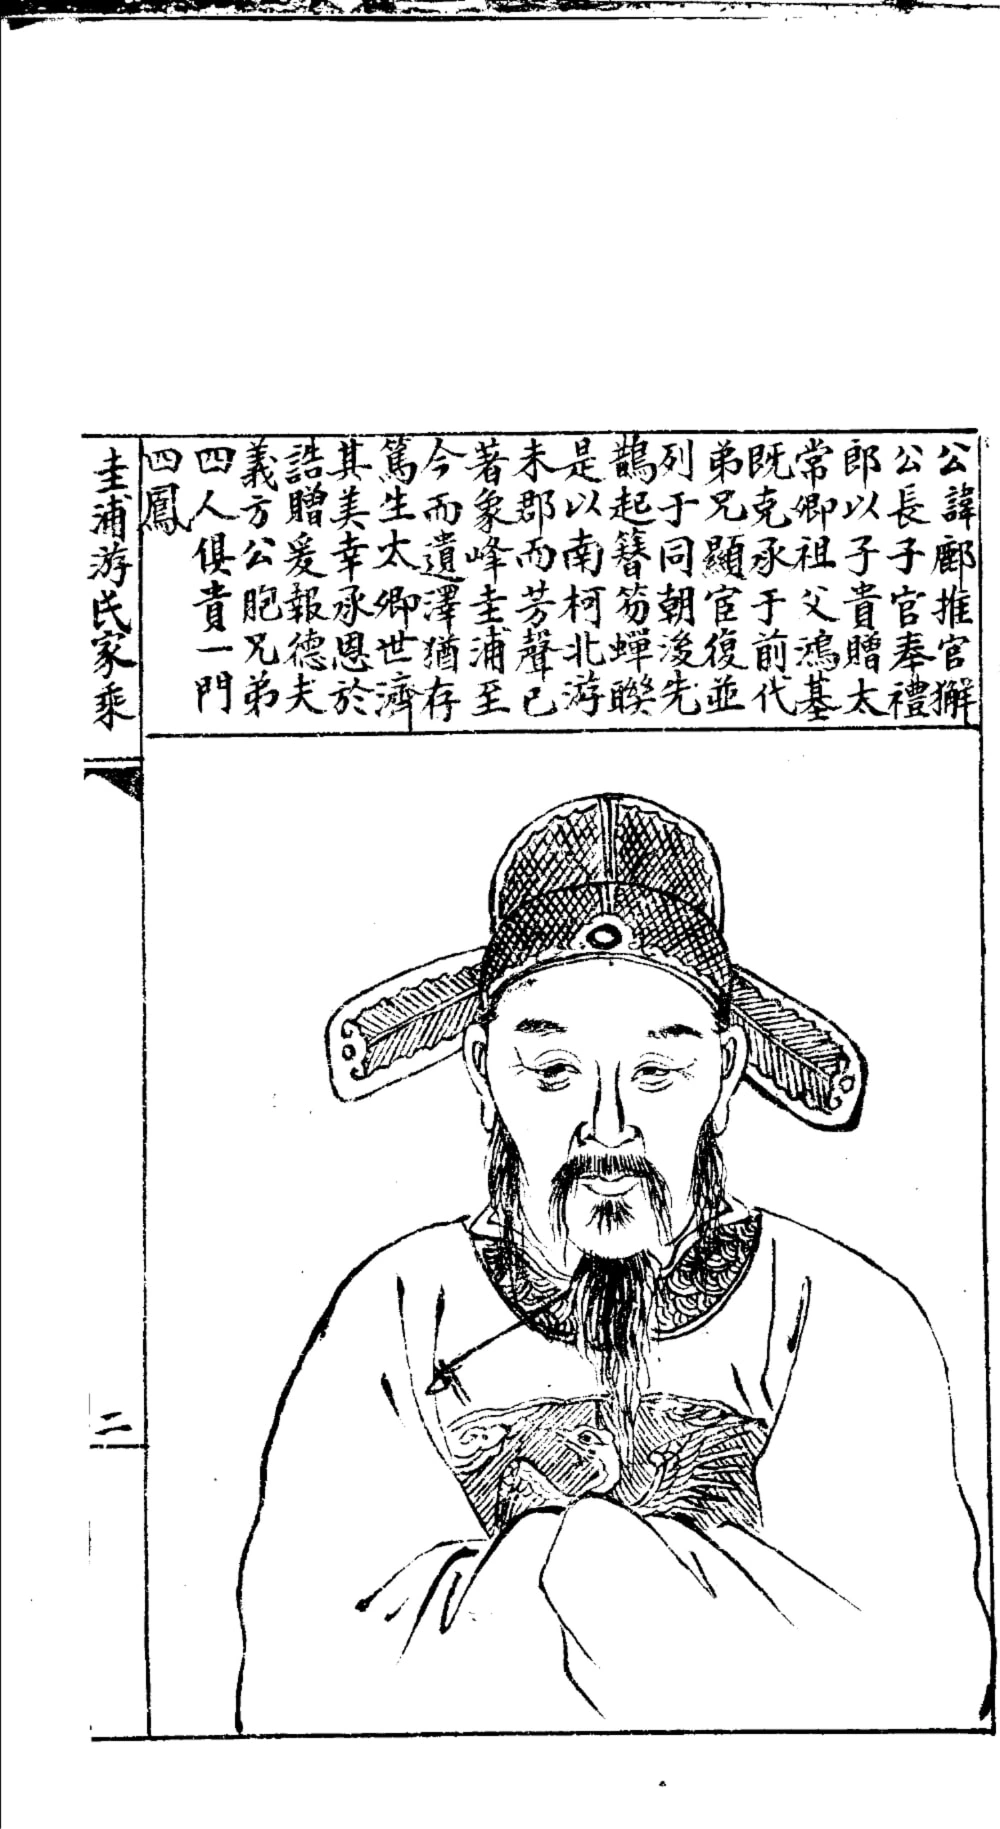 公諱郙推官獬
公長子官奉禮
郎以子貴贈太
常卿祖父鴻基
既克承于前代
弟兄顯宦復並
列于同朝浚先
鵲起簪笏蟬聯
是以南柯北游
未郡而芳聲已
著象峰圭浦至
今而遺澤猶存
篤生太卿世濟
其美幸承恩於
誥贈爰報德夫
義方公胞兄弟
四人俱貴一門
四鳳
圭浦游氏家乘
二